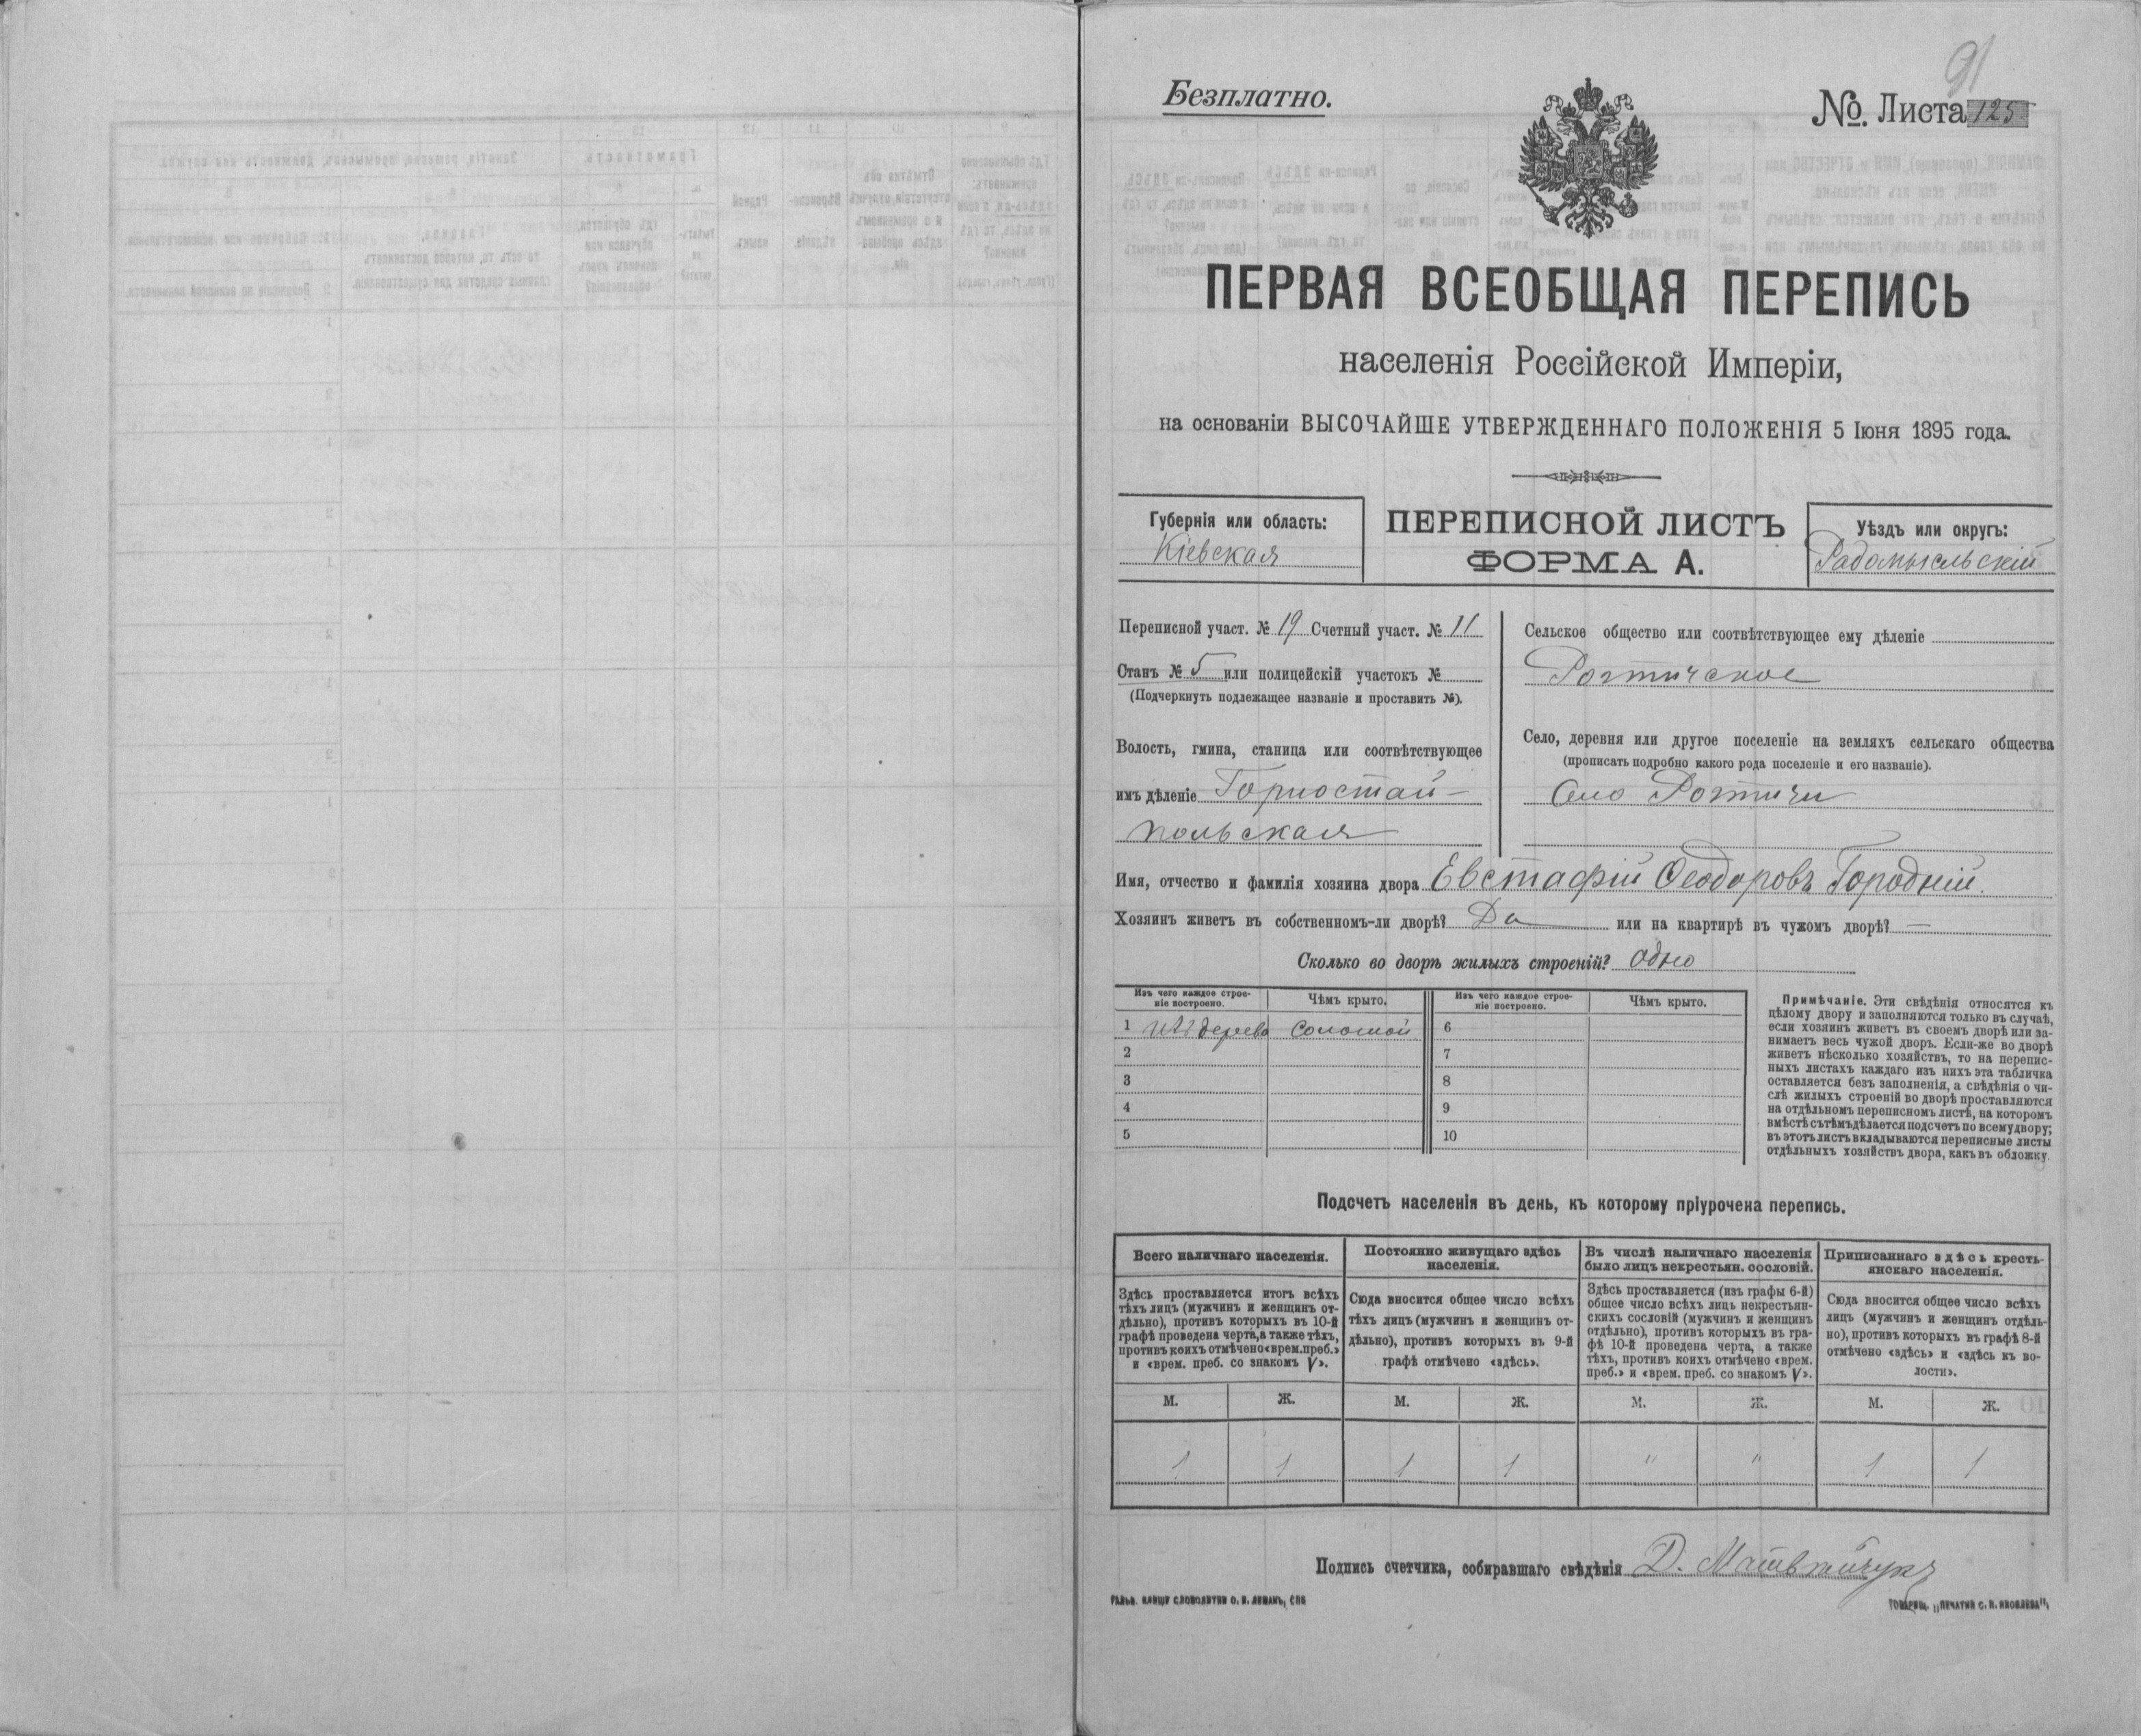 91
Безплатно.
№. Листа 125
ПЕРВАЯ ВСЕОБЩАЯ ПЕРЕПИСЬ
населенія Россійской Имперіи,
на основаніи ВЫСОЧАЙШЕ УТВЕРЖДЕННАГО ПОЛОЖЕНІЯ 5 Іюня 1895 года.
Губернія или область:
Кіевская
ПЕРЕПИСНОЙ ЛИСТЪ
ФОРМА А.
Уѣздъ или округъ:
Радомысльскій
Переписной участ. № 19 Счетный участ. № 11
Станъ № 5 или полицейскій участокъ №
(Подчеркнуть подлежащее названіе и проставить №).
Волость, гмина, станица или соотвѣтствующее
имъ дѣленіе Горностай-
польская
Сельское общество или соотвѣтствующее ему дѣленіе
Рогтичское
Село, деревня или другое поселеніе на земляхъ сельскаго общества
(прописать подробно какого рода поселеніе и его названіе).
Село Рогтичи
Имя, отчество и фамилія хозяина двора Евстафій Ѳеодоровъ Городній.
Хозяинъ живетъ въ собственномъ-ли дворѣ? Да или на квартирѣ въ чужомъ дворѣ? —
Сколько во дворѣ жилыхъ строеній? одно
Изъ чего каждое строе-
ніе построено.
Чѣмъ крыто.
Изъ чего каждое строе-
ніе построено.
Чѣмъ крыто.
1 изъ дерева соломой 6
2 7
3 8
4 9
5 10
Примѣчаніе. Эти свѣдѣнія относятся къ
цѣлому двору и заполняются только въ случаѣ,
если хозяинъ живетъ въ своемъ дворѣ или за-
нимаетъ весь чужой дворъ. Если-же во дворѣ
живетъ нѣсколько хозяйствъ, то на перепис-
ныхъ листахъ каждаго изъ нихъ эта табличка
оставляется безъ заполненія, а свѣдѣнія о чи-
слѣ жилыхъ строеній во дворѣ проставляются
на отдѣльномъ переписномъ листѣ, на которомъ
вмѣстѣ съ тѣмъ дѣлается подсчетъ по всему двору;
въ этотъ листъ вкладываются переписные листы
отдѣльныхъ хозяйствъ двора, какъ въ обложку.
Подсчетъ населенія въ день, къ которому пріурочена перепись.
Всего наличнаго населенія.
Здѣсь проставляется итогъ всѣхъ
тѣхъ лицъ (мужчинъ и женщинъ от-
дѣльно), противъ которыхъ въ 10-й
графѣ проведена черта, а также тѣхъ,
противъ коихъ отмѣчено «врем. преб.»
и «врем. преб. со знакомъ V».
Постоянно живущаго здѣсь
населенія.
Сюда вносится общее число всѣхъ
тѣхъ лицъ (мужчинъ и женщинъ от-
дѣльно), противъ которыхъ въ 9-й
графѣ отмѣчено «здѣсь».
Въ числѣ наличнаго населенія
было лицъ некрестьян. сословій.
Здѣсь проставляется (изъ графы 6-й)
общее число всѣхъ лицъ некрестьян-
скихъ сословій (мужчинъ и женщинъ
отдѣльно), противъ которыхъ въ гра-
фѣ 10-й проведена черта, а также
тѣхъ, противъ коихъ отмѣчено «врем.
преб.» и «врем. преб. со знакомъ V».
Приписаннаго здѣсь кресть-
янскаго населенія.
Сюда вносится общее число всѣхъ
лицъ (мужчинъ и женщинъ отдѣль-
но), противъ которыхъ въ графѣ 8-й
отмѣчено «здѣсь» и «здѣсь къ во-
лости».
М. Ж. М. Ж. М. Ж. М. Ж.
1 1 1 1 " " 1 1
Подпись счетчика, собиравшаго свѣдѣнія Д. Матвійчукъ
Гальв. клише словолитни О. И. Леманъ, СПБ
Товарищ. „Печатня С. П. Яковлева“,